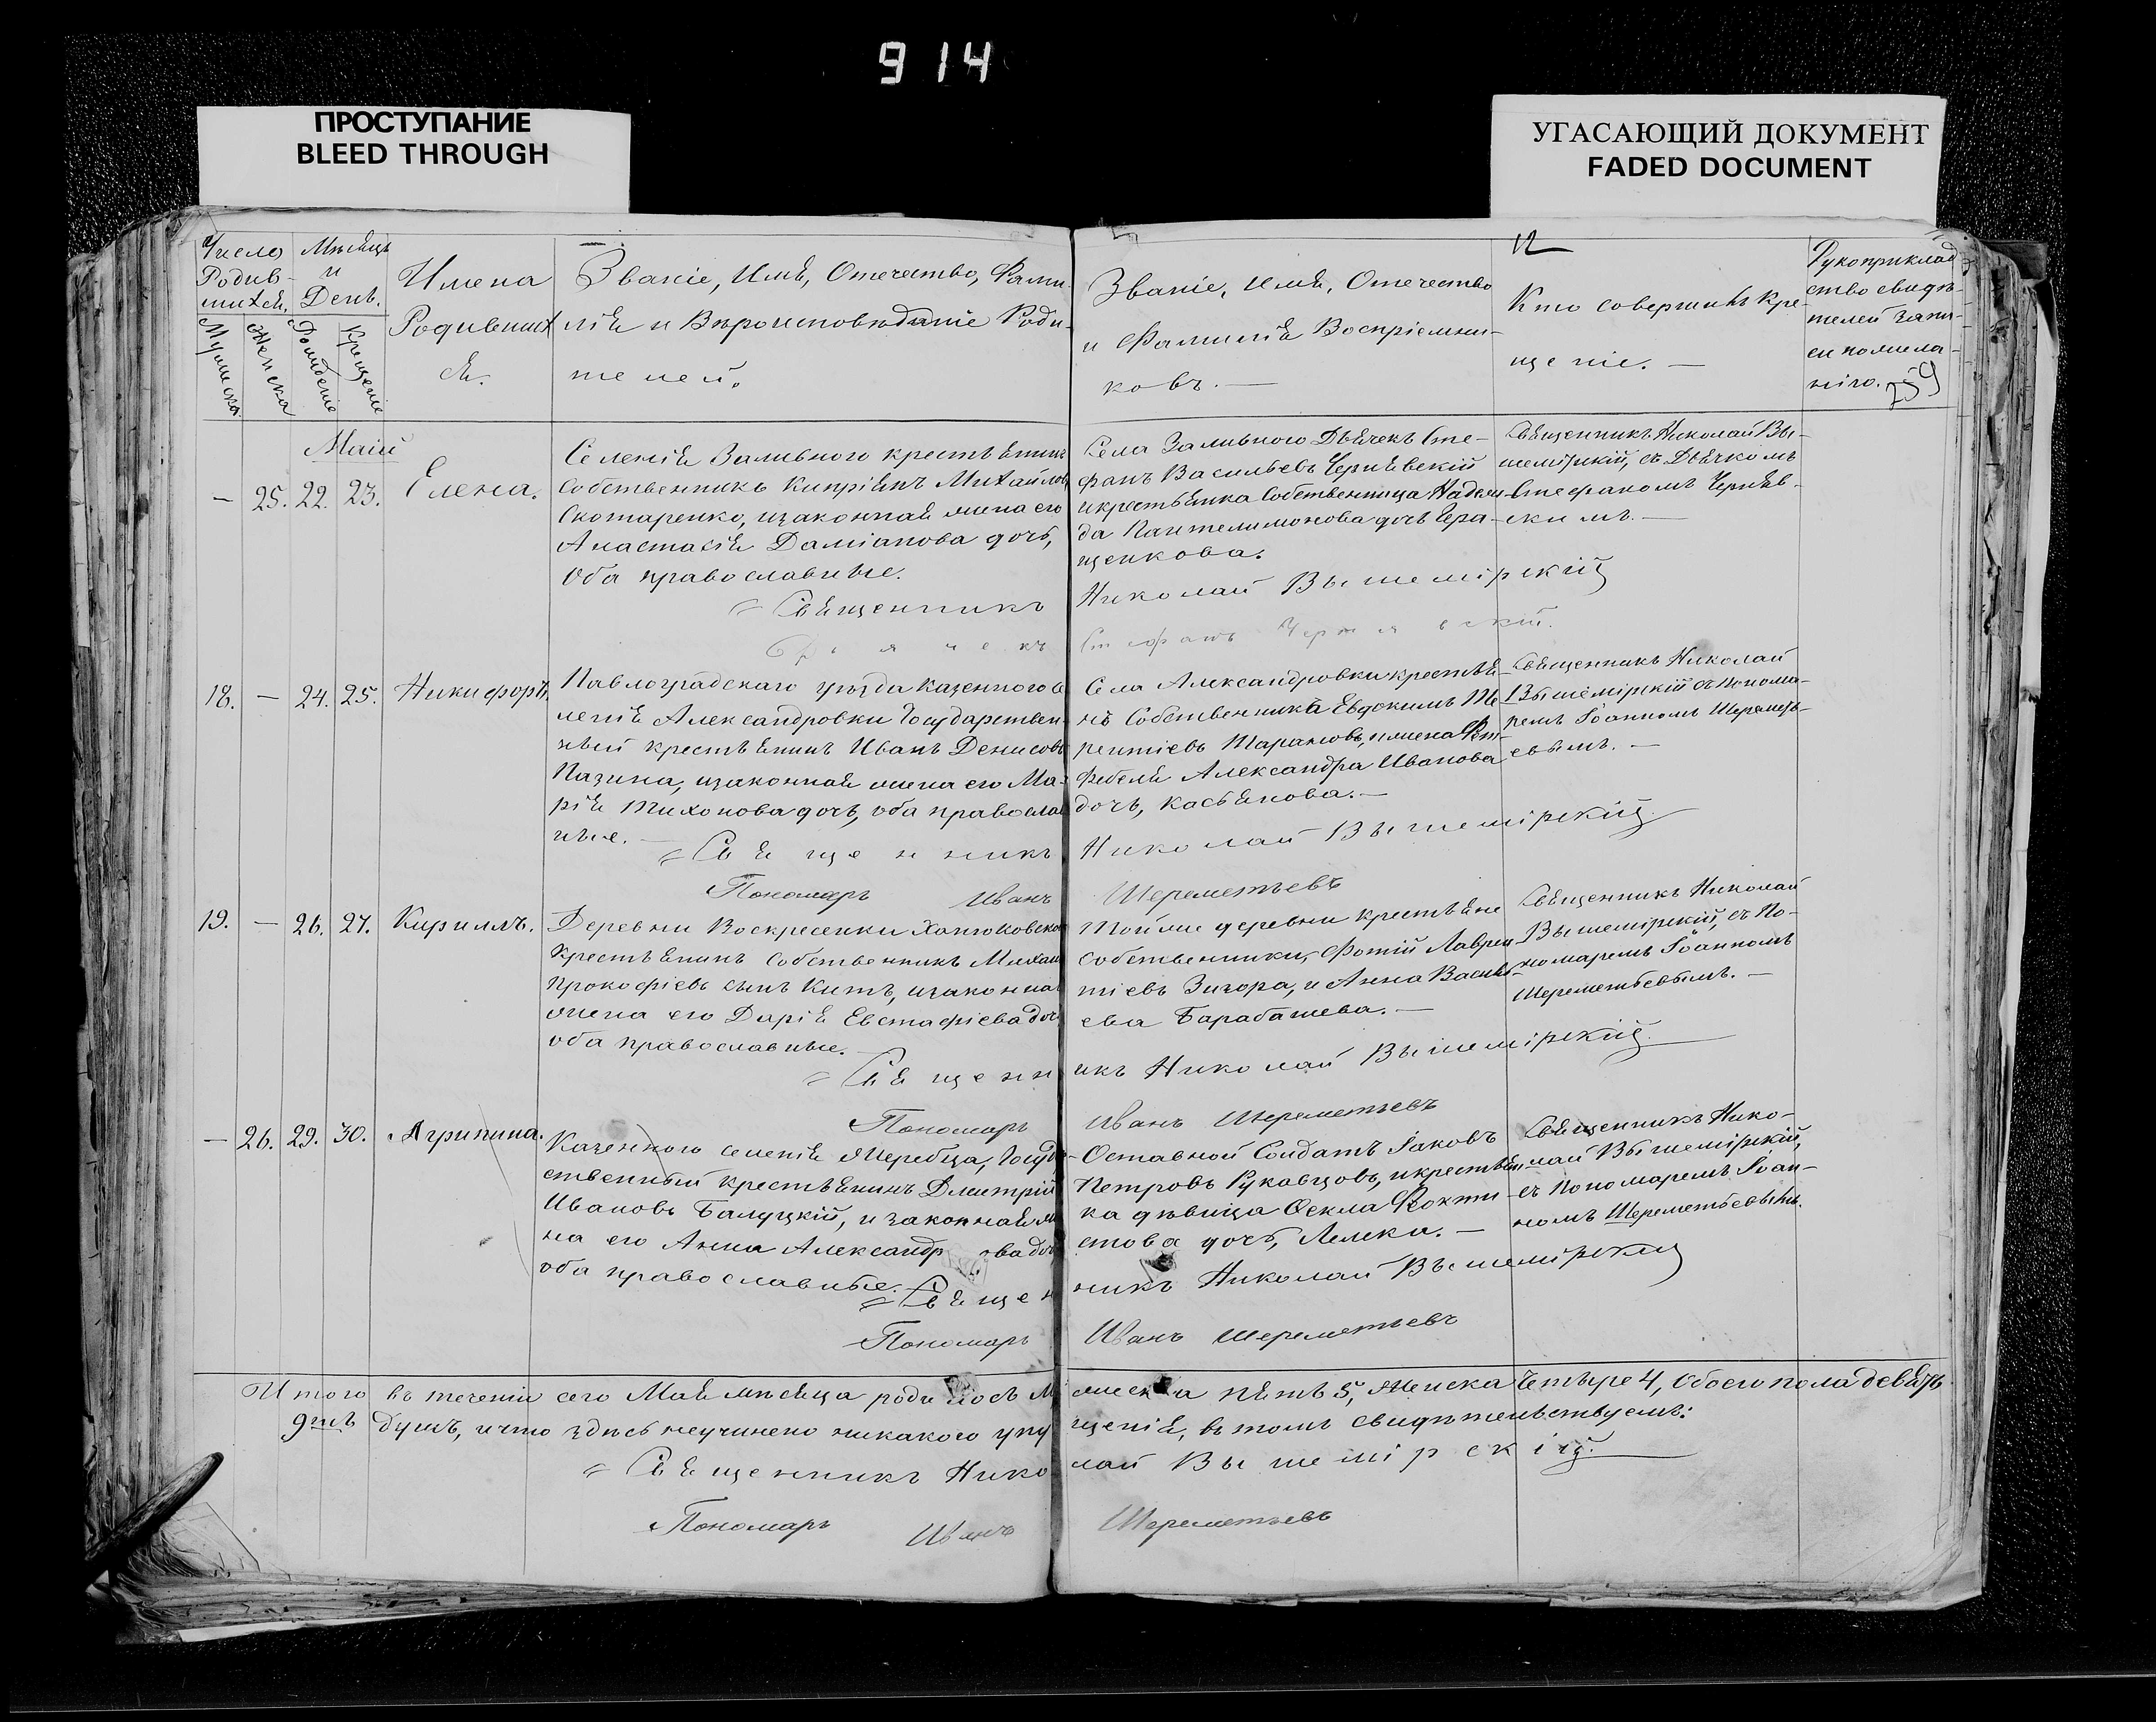 914
ПРОСТУПАНИЕ
BLEED THROUGH
УГАСАЮЩИЙ ДОКУМЕНТ
FADED DOCUMENT
Число
Родив-
шихся.
Мѣсяцъ
и
День.
Мужеска
Женска
Рожденіе
Крещеніе
Имена
Родивших
ся.
Званіе, Имя, Отечество, Фами-
лія и Вѣроисповѣданіе Роди-
телей.
12
Званіе, Имя, Отечество
и Фамилія Воспріемни-
ковъ. —
Кто совершилъ кре
щеніе. —
Рукоприклад
ство свидѣ-
телей запи-
си по жела-
нію.
759
Маій
— 25. 22. 23. Елена.
Селенія Заливного крестьянин
Собственникъ Кипріянъ Михайлов
Скотаренко, изаконная жена его
Анастасія Даміанова дочь,
Оба православные.
= Священникъ
Дьячекъ
Села Заливного Дьячекъ Сте-
фанъ Васильевъ Чернявскій
икрестьянка Собственница Надеж-
да Пантелимонова дочь Гера-
щенкова.
Николай Вышемірскій
Стефанъ Чернявскій.
Священникъ Николай Вы-
шемірскій, съ Дьячкомъ
Стефаномъ Черняв-
скимъ. —
18. — 24. 25. Никифоръ.
Павлоградскаго уѣзда Казенного се
ленія Александровки Государствен-
ный крестьянинъ Иванъ Денисовъ
Пазина, изаконная жена его Ма-
рія Тихонова дочь, оба православ
ные. —
= Священникъ
Пономарь Иванъ
Села Александровки крестья-
нъ Собственника Евдокимъ Те
рентіевъ Тарановъ, ижена
фебеля Александра Иванова
дочь, Касьянова. —
Николай Вышемірскій.
Шереметьевъ
Священникъ Николай
Вышемірскій съ Понома-
ремъ Іоанномъ Шереметь-
евымъ. —
19. — 26. 27. Кириллъ.
Деревни Воскресенки Ханжоковской
Крестьянинъ Собственникъ Михаил
Прокофіевъ сынъ Китъ, изаконная
жена его Дарія Евстафіева дочь
оба православные.
= Священн
Пономарь
Тойже деревни крестьяне
собственники, Фотій Лаврен
тіевъ Зигора, и Анна Василь-
ева Барабашева. —
икъ Николай Вышемірскій.
Иванъ Шереметьевъ
Священникъ Николай
Вышемірскій, съ По-
номаремъ Іоанномъ
Шереметьевымъ. —
— 26. 29. 30. Агрипина.
Казенного селенія Жеребца, Госуда
ственный крестьянинъ Дмитрій
Ивановъ Балуцкій, и законная же
на его Анна Александр ова дочь
оба православные.
= Священ
Пономарь
Оставной Солдатъ Іаковъ
Петровъ Рукавцовъ, икрестьян
ка дѣвица Ѳекла Ѳокти-
стова дочь, Лелека. —
никъ Николай Вышемірскій
Иванъ Шереметьевъ
Священникъ Нико-
лай Вышемірскій,
съ Пономаремъ Іоан-
номъ Шереметьевымъ.
Итого въ теченіи сего Мая мѣсяца родилось Му жеска пять 5, Женска Четыре 4, Обоего пола девять
9ть душъ, ичто здѣсь неучинено никакого упу щенія, въ томъ свидѣтельствуемъ:
= Священникъ Нико лай Вышемірскій.
Пономарь Иванъ Шереметьевъ